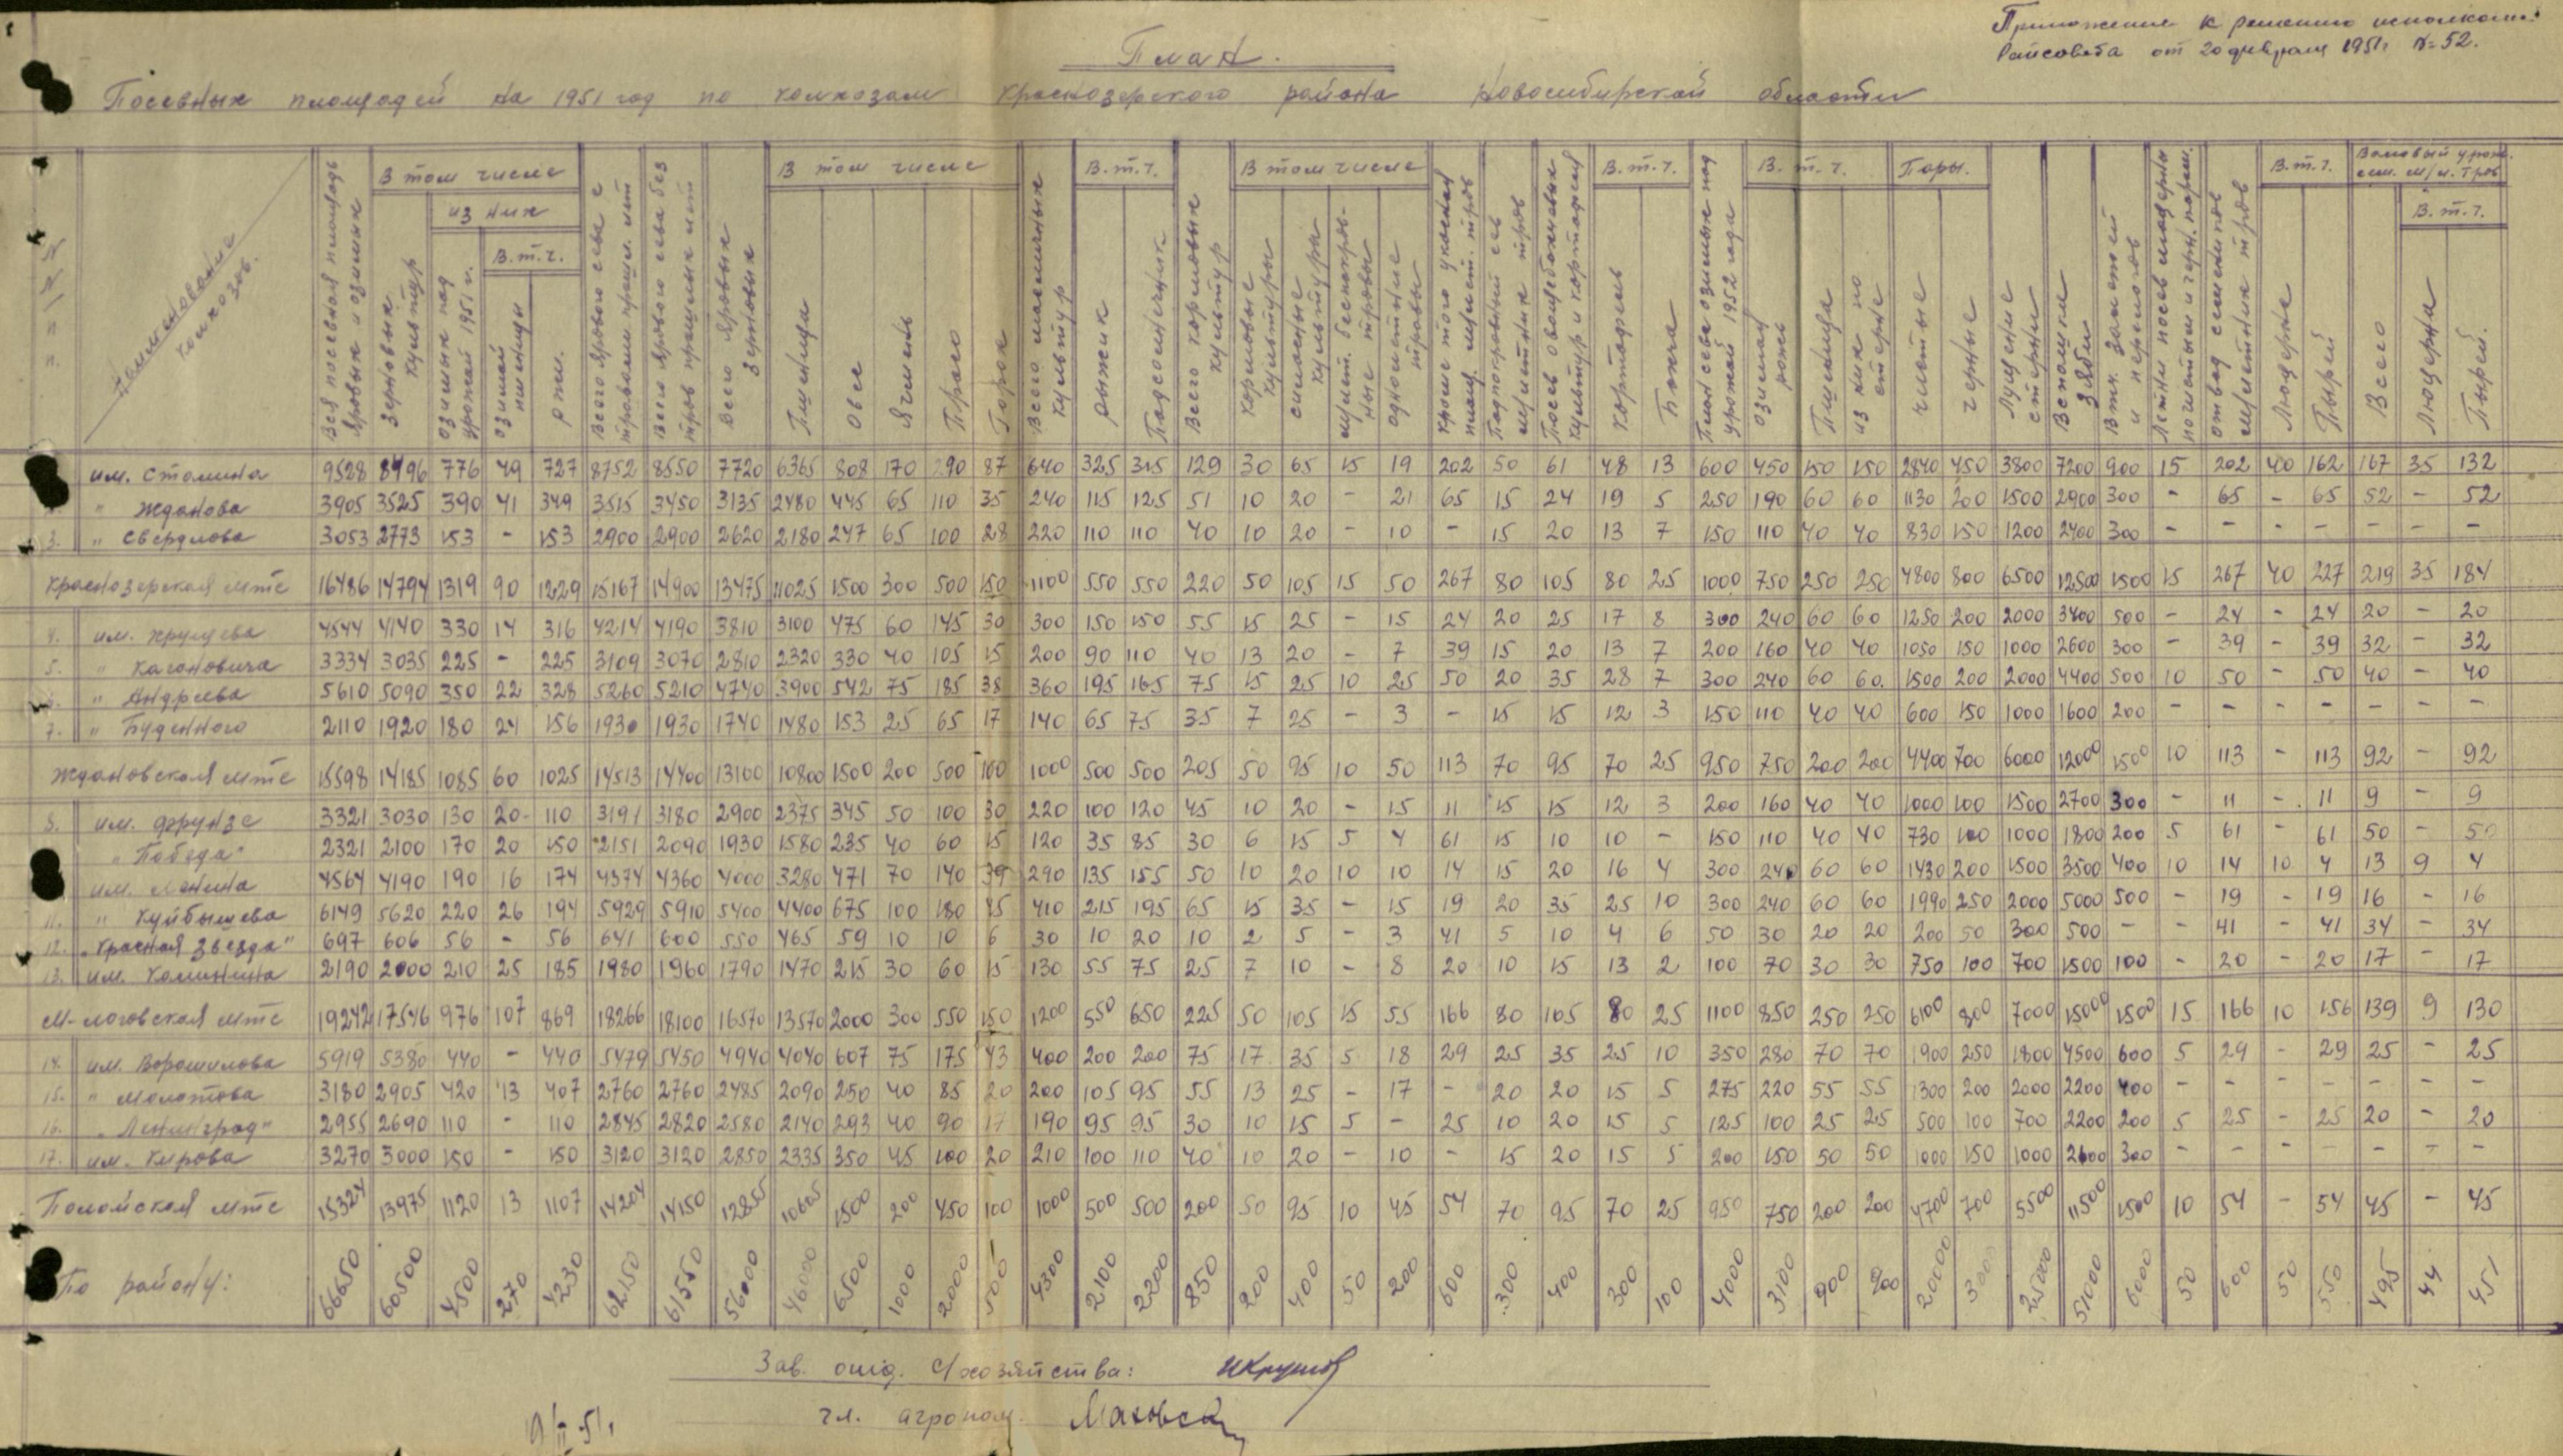 Приложение к решению исполкома
Райсовета от 20 февраля 1951г. №52.
План.
Посевных площадей на 1951 год по колхозам Краснозерского района Новосибирской области
№ п/п.
Наименование колхозов.
Вся посевная площадь яровых и озимых
В том числе
Зерновых культур
из них
озимых под урожай 1951 г.
В.т.ч.
озимой пшеницы
ржи.
Всего ярового сева с травами прошл. лет
Всего ярового сева без трав прошлых лет
Всего яровых зерновых
В том числе
Пшеница
Овес
Ячмень
Просо
Горох
Всего масличных культур
В.т.ч.
рыжик
Подсолнечник
Всего кормовых культур
В том числе
кормовые культуры
силосные культуры
многолет. беспокров-ные травы
однолетние травы
Подпокровный сев многолетних трав
Посев овощебахчевых культур и картофеля
В.т.ч.
картофель
Бахча
План сева озимых под урожай 1952 года
В.т.ч.
озимая рожь
Пшеница
из них по стерне
Пары.
чистые
черные
Лущение стерни
Вспашка зяби
В т.ч. залежей и перелогов
Летний посев люцерны по чистым и черн. парам.
отвод семенников многолетних трав
В.т.ч.
Люцерна
Пырей
Валовый урож. сем. м/л. трав
Всего
В.т.ч.
Люцерна
Пырей.
им. Сталина 9528 8496 776 49 727 8752 8550 7720 6365 808 170 290 87 640 325 315 129 30 65 15 19 202 50 61 48 13 600 450 150 150 2840 450 3800 7200 900 15 202 40 162 167 35 132
" Жданова 3905 3525 390 41 349 3515 3450 3135 2480 445 65 110 35 240 115 125 51 10 20 - 21 65 15 24 19 5 250 190 60 60 1130 200 1500 2900 300 - 65 - 65 52 - 52
3. " Свердлова 3053 2773 153 - 153 2900 2900 2620 2180 247 65 100 28 220 110 110 40 10 20 - 10 - 15 20 13 7 150 110 40 40 830 150 1200 2400 300 - - - - - - -
Краснозерская мтс 16486 14794 1319 90 1229 15167 14900 13475 11025 1500 300 500 150 1100 550 550 220 50 105 15 50 267 80 105 80 25 1000 750 250 250 4800 800 6500 12500 1500 15 267 40 227 219 35 184
4. им. Хрущева 4544 4140 330 14 316 4214 4190 3810 3100 475 60 145 30 300 150 150 55 15 25 - 15 24 20 25 17 8 300 240 60 60 1250 200 2000 3400 500 - 24 - 24 20 - 20
5. " Кагановича 3334 3035 225 - 225 3109 3070 2810 2320 330 40 105 15 200 90 110 40 13 20 - 7 39 15 20 13 7 200 160 40 40 1050 150 1000 2600 300 - 39 - 39 32 - 32
6. " Андреева 5610 5090 350 22 328 5260 5210 4740 3900 542 75 185 38 360 195 165 75 15 25 10 25 50 20 35 28 7 300 240 60 60. 1500 200 2000 4400 500 10 50 - 50 40 - 40
7. " Буденного 2110 1920 180 24 156 1930 1930 1740 1480 153 25 65 17 140 65 75 35 7 25 - 3 - 15 15 12 3 150 110 40 40 600 150 1000 1600 200 - - - - - - -
Ждановская мтс 15598 14185 1085 60 1025 14513 14400 13100 10800 1500 200 500 100 1000 500 500 205 50 95 10 50 113 70 95 70 25 950 750 200 200 4400 700 6000 12000 1500 10 113 - 113 92 - 92
8. им. Фрунзе 3321 3030 130 20 110 3191 3180 2900 2375 345 50 100 30 220 100 120 45 10 20 - 15 11 15 15 12 3 200 160 40 40 1000 100 1500 2700 300 - 11 - 11 9 - 9
"Победа" 2321 2100 170 20 150 2151 2090 1930 1580 235 40 60 15 120 35 85 30 6 15 5 4 61 15 10 10 - 150 110 40 40 730 100 1000 1800 200 5 61 - 61 50 - 50
им. Ленина 4564 4190 190 16 174 4374 4360 4000 3280 471 70 140 39 290 135 155 50 10 20 10 10 14 15 20 16 4 300 240 60 60 1430 200 1500 3500 400 10 14 10 4 13 9 4
11. " Куйбышева 6149 5620 220 26 194 5929 5910 5400 4400 675 100 180 45 410 215 195 65 15 35 - 15 19 20 35 25 10 300 240 60 60 1990 250 2000 5000 500 - 19 - 19 16 - 16
12. "Красная звезда" 697 606 56 - 56 641 600 550 465 59 10 10 6 30 10 20 10 2 5 - 3 41 5 10 4 6 50 30 20 20 200 50 300 500 - - 41 - 41 34 - 34
13. им. Калинина 2190 2000 210 25 185 1980 1960 1790 1470 215 30 60 15 130 55 75 25 7 10 - 8 20 10 15 13 2 100 70 30 30 750 100 700 1500 100 - 20 - 20 17 - 17
М-логовская мтс 19242 17546 976 107 869 18266 18100 16570 13570 2000 300 550 150 1200 550 650 225 50 105 15 55 166 80 105 80 25 1100 850 250 250 6100 800 7000 15000 1500 15 166 10 156 139 9 130
14. им. Ворошилова 5919 5380 440 - 440 5479 5450 4940 4040 607 75 175 43 400 200 200 75 17 35 5 18 29 25 35 25 10 350 280 70 70 1900 250 1800 4500 600 5 29 - 29 25 - 25
15. " Молотова 3180 2905 420 13 407 2760 2760 2485 2090 250 40 85 20 200 105 95 55 13 25 - 17 - 20 20 15 5 275 220 55 55 1300 200 2000 2200 400 - - - - - - -
16. "Ленинград" 2955 2690 110 - 110 2845 2820 2580 2140 293 40 90 17 190 95 95 30 10 15 5 - 25 10 20 15 5 125 100 25 25 500 100 700 2200 200 5 25 - 25 20 - 20
17. им. Кирова 3270 3000 150 - 150 3120 3120 2850 2335 350 45 100 20 210 100 110 40 10 20 - 10 - 15 20 15 5 200 150 50 50 1000 150 1000 2600 300 - - - - - - -
Полойская мтс 15324 13975 1120 13 1107 14204 14150 12855 10605 1500 200 450 100 1000 500 500 200 50 95 10 45 54 70 95 70 25 950 750 200 200 4700 700 5500 11500 1500 10 54 - 54 45 - 45
По району: 66650 60500 4500 270 4230 62150 61550 56000 46000 6500 1000 2000 500 4300 2100 2200 850 200 400 50 200 600 300 400 300 100 4000 3100 900 900 20000 3000 25000 51000 6000 50 600 50 550 495 44 451
Зав. отд. с/хозяйства:
гл. агроном.